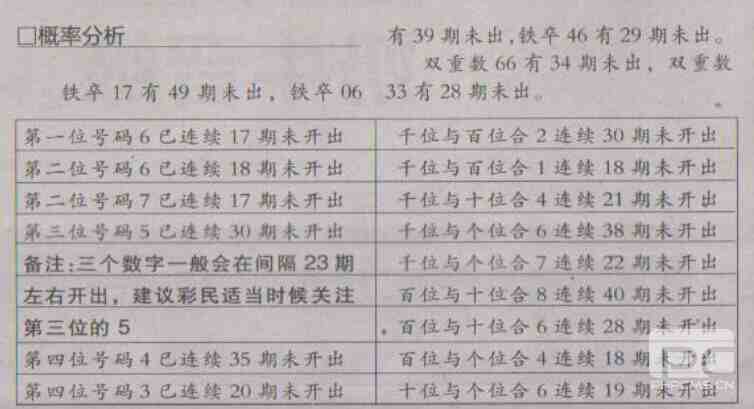 □概率分析
铁卒 17 有 49 期未出，铁卒 06
有 39 期未出,铁卒 46 有 29 期未出。
双重数 66 有 34 期未出，双重数
33 有 28 期未出。
第一位号码 6 已连续 17 期未开出
第二位号码 6 已连续 18 期未开出
第二位号码 7 已连续 17 期未开出
第三位号码 5 已连续 30 期未开出
备注:三个数字一般会在间隔 23 期
左右开出，建议彩民适当时候关注
第三位的 5
第四位号码 4 已连续 35 期未开出
第四位号码 3 已连续 20 期未开出
千位与百位合 2 连续 30 期未开出
千位与百位合 1 连续 18 期未开出
千位与十位合 4 连续 21 期未开出
千位与个位合 6 连续 38 期未开出
千位与个位合 7 连续 22 期未开出
百位与十位合 8 连续 40 期未开出
百位与十位合 6 连续 28 期未开出
百位与个位合 4 连续 18 期未开出
十位与个位合 6 连续 19 期未开出